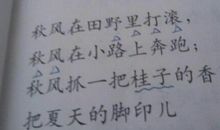 秋风在田野里打滚，
秋风在小路上奔跑；
秋风抓一把桂子的香
把夏天的脚印儿